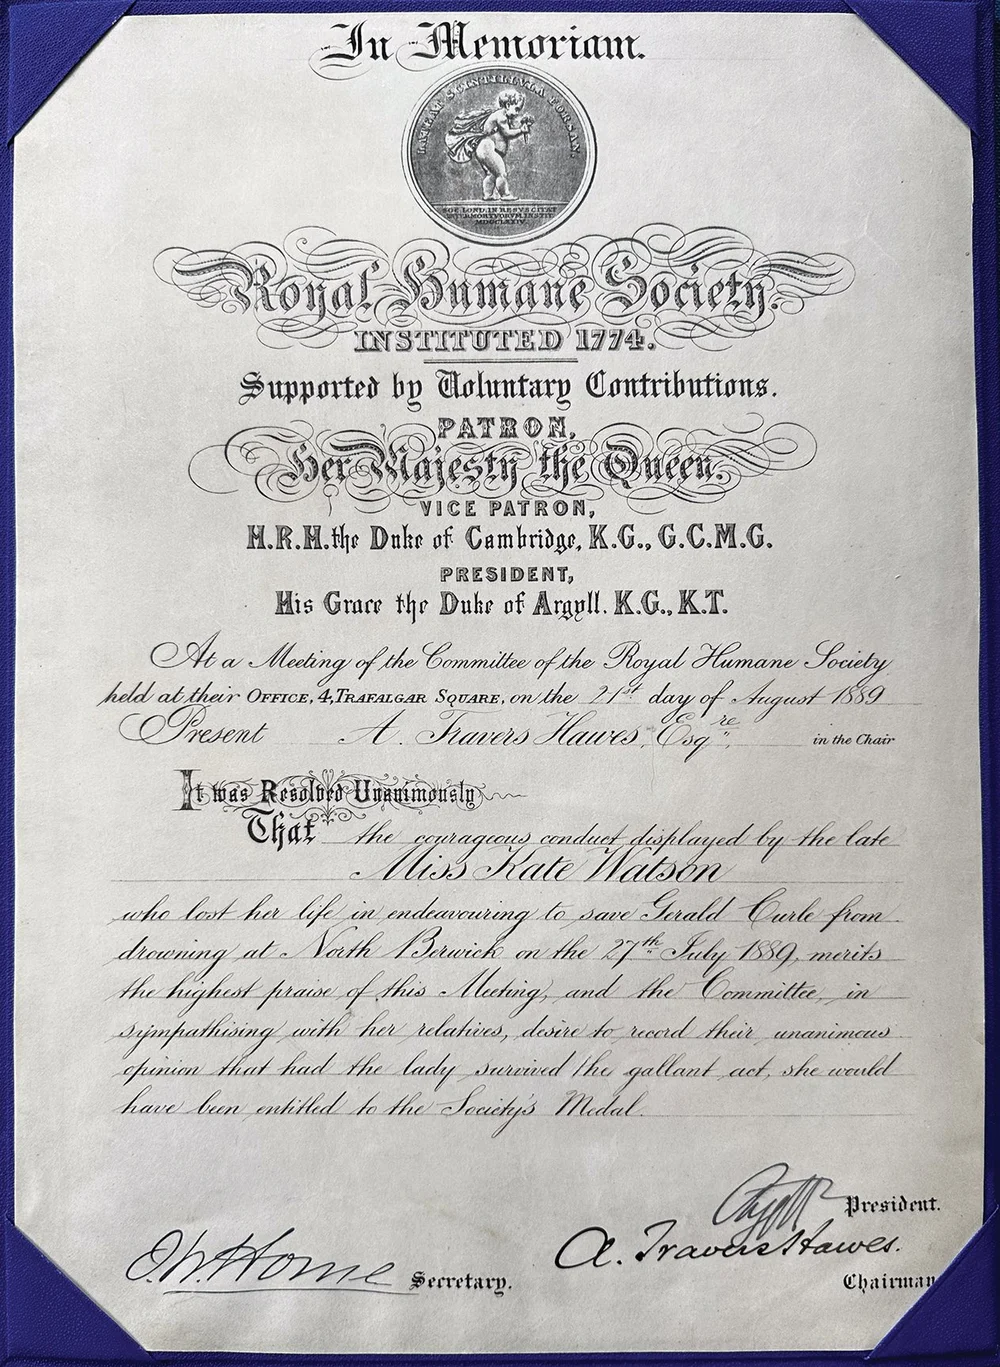 In Memoriam.
LATEAT SCINTILLVLA FORSAN.
SOC. LOND. IN RESVSCITAT
INTERMORTVORVM INSTIT
MDCCLXXIV.
Royal Humane Society.
INSTITUTED 1774.
Supported by Voluntary Contributions.
PATRON,
Her Majesty the Queen.
VICE PATRON,
H.R.H. the Duke of Cambridge, K.G., G.C.M.G.
PRESIDENT,
His Grace the Duke of Argyll. K.G., K.T.
At a Meeting of the Committee of the Royal Humane Society
held at their OFFICE, 4, TRAFALGAR SQUARE, on the 21st day of August 1889
Present A. Travers Hawes, Esqre, in the Chair
It was Resolved Unanimously
That the courageous conduct displayed by the late
Miss Kate Watson
who lost her life in endeavouring to save Gerald Curle from
drowning at North Berwick on the 27th July 1889, merits
the highest praise of this Meeting, and the Committee, in
sympathising with her relatives, desire to record their unanimous
opinion that had the lady survived the gallant act, she would
have been entitled to the Society's Medal.
Argyll President.
A. Travers Hawes.
J.W. Horne Secretary. Chairman